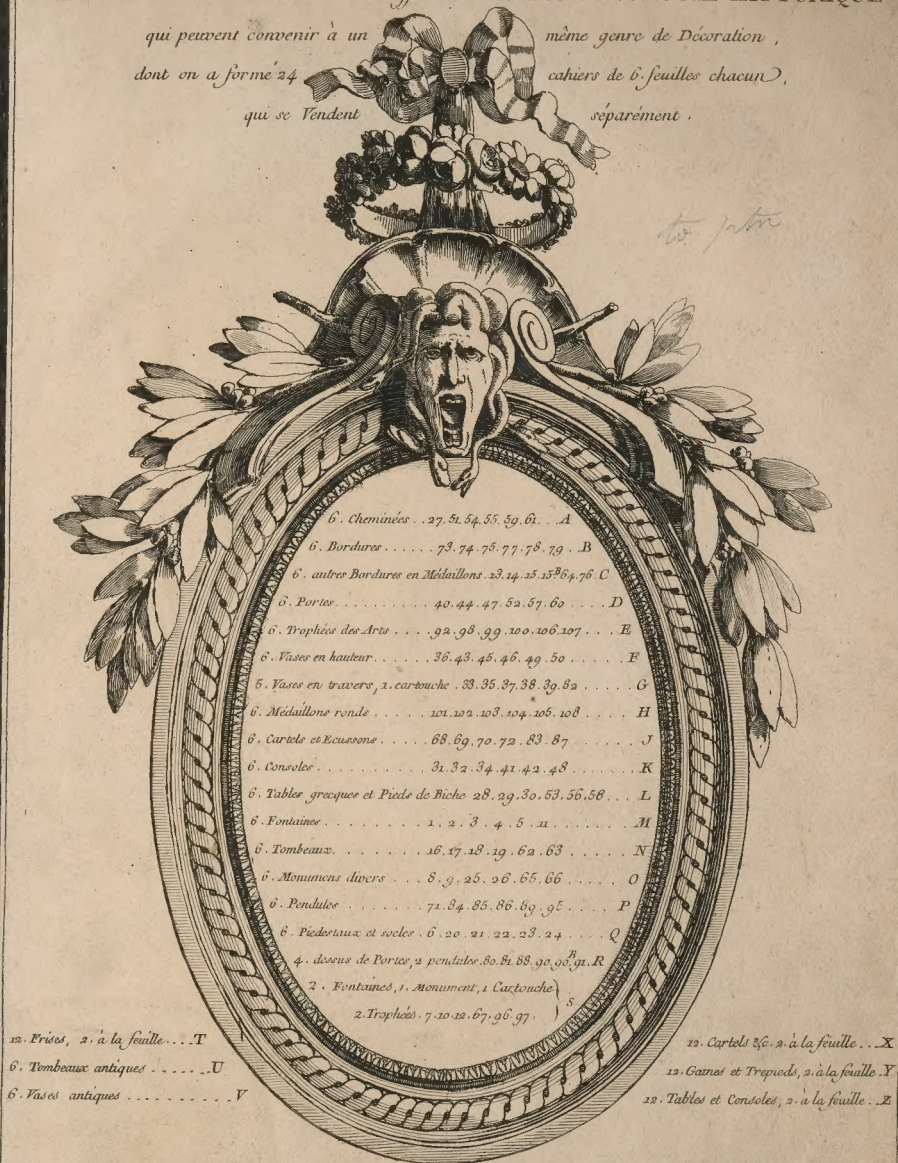 qui peuvent convenir à un même genre de Décoration,
dont on a formé 24 cahiers de 6. feuilles chacun,
qui se Vendent séparément.
6. Cheminées . . 27. 51. 54. 55. 59. 61. . . A
6. Bordures . . . . . . 73. 74. 75. 77. 78. 79 . . B
6. autres Bordures en Médaillons . 13. 14. 15. 15ᴮ 64. 76. C
6. Portes . . . . . . . . . 40. 44. 47. 52. 57. 60 . . . . D
6. Trophées des Arts . . . . 92. 98. 99. 100. 106. 107 . . . E
6. Vases en hauteur . . . . . . 36. 43. 45. 46. 49. 50 . . . . . . F
5. Vases en travers, 1. cartouche . 33. 35. 37. 38. 39. 82 . . . . . G
6. Médaillons ronds . . . . . 101. 102. 103. 104. 105. 108 . . . . H
6. Cartels et Ecussons . . . . . 68. 69. 70. 72. 83. 87 . . . . . J
6. Consoles . . . . . . . . . 31. 32. 34. 41. 42. 48 . . . . . . K
6. Tables grecques et Pieds de Biche 28. 29. 30. 53. 56. 58 . . . L
6. Fontaines . . . . . . . . 1. 2. 3. 4. 5. 11 . . . . . . M
6. Tombeaux . . . . . . . . 16. 17. 18. 19. 62. 63 . . . . . N
6. Monumens divers . . . 8. 9. 25. 26. 65. 66 . . . . . O
6. Pendules . . . . . . . 71. 84. 85. 86. 89. 95 . . . . P
6. Piedestaux et socles . 6. 20. 21. 22. 23. 24 . . . . Q
4. dessus de Portes, 2 pendules. 80. 81. 88. 90. 90ᴮ. 91. R
2. Fontaines, 1. Monument, 1 Cartouche } S.
2. Trophées. 7. 10. 12. 67. 96. 97.
12. Frises, 2. à la feuille . . . . T
6. Tombeaux antiques . . . . . . U
6. Vases antiques . . . . . . . . . . V
12. Cartels &c. 2. à la feuille . . . X
12. Gaines et Trepieds, 2. à la feuille . Y
12. Tables et Consoles, 2. à la feuille . . Z